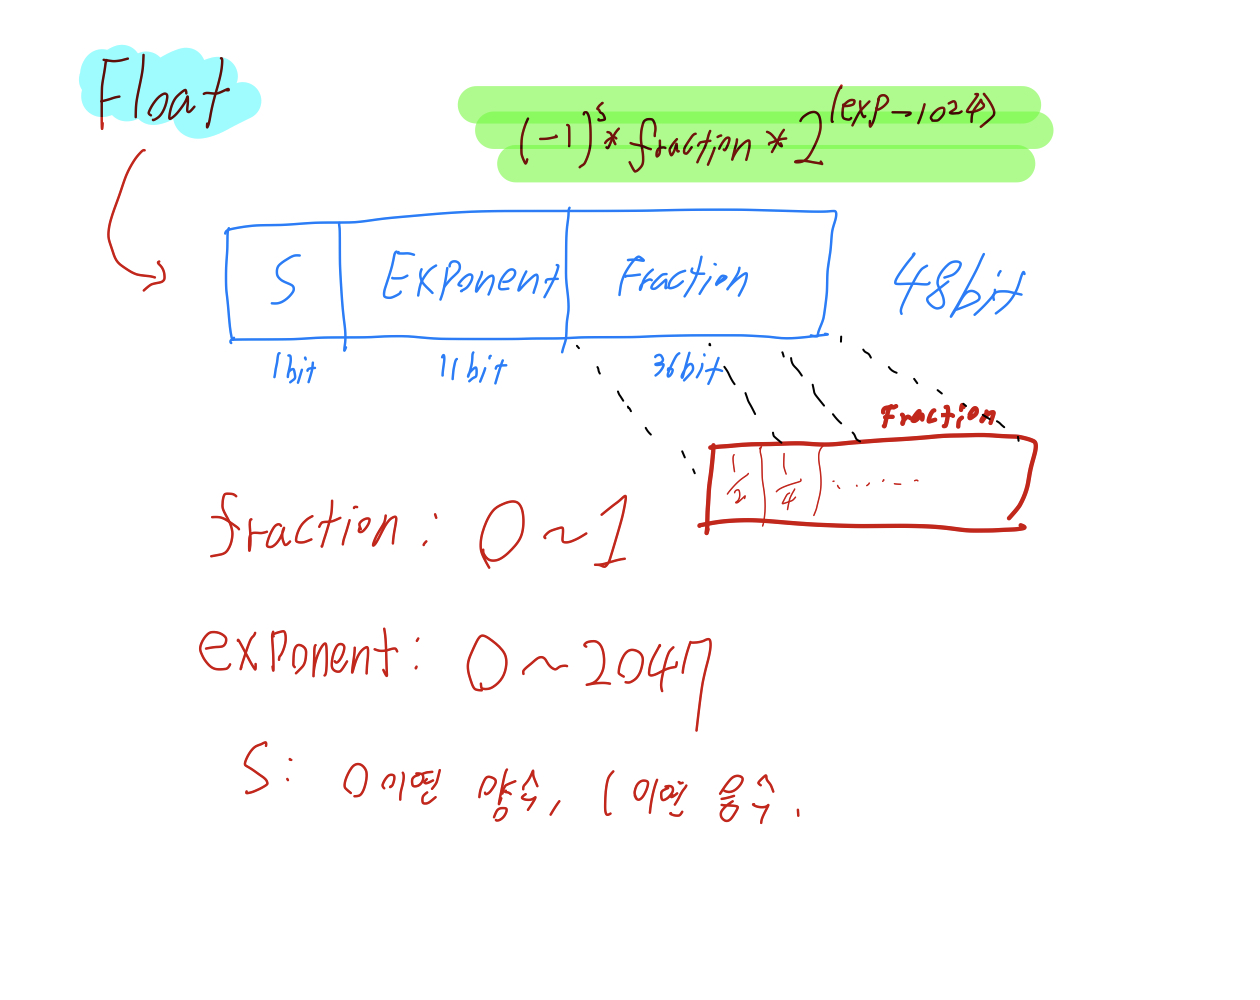 Float
(-1)^s * fraction * 2^(exp-1024)
S Exponent Fraction 48bit
1bit 11bit 36bit
Fraction
1/2 1/4 .......
fraction: 0~1
exponent: 0~2047
S: 0이면 양수, 1이면 음수.